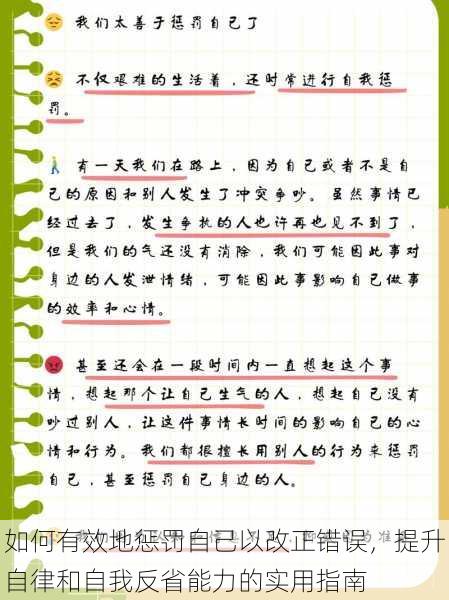 我们太善于惩罚自己了
不仅艰难的生活着，还时常进行自我惩
罚。
有一天我们在路上，因为自己或者不是自
己的原因和别人发生了冲突争吵。虽然事情已
经过去了，发生争执的人也许再也见不到了，
但是我们的气还没有消除，我们可能因此事对
身边的人发泄情绪，可能因此事影响自己做事
的效率和心情。
甚至还会在一段时间内一直想起这个事
情，想起那个让自己生气的人，想起自己没有
吵过别人，让这件事情长时间的影响自己的心
情和行为。我们都很擅长用别人的行为来惩罚
自己，甚至惩罚自己身边的人。
如何有效地惩罚自己以改正错误，提升
自律和自我反省能力的实用指南